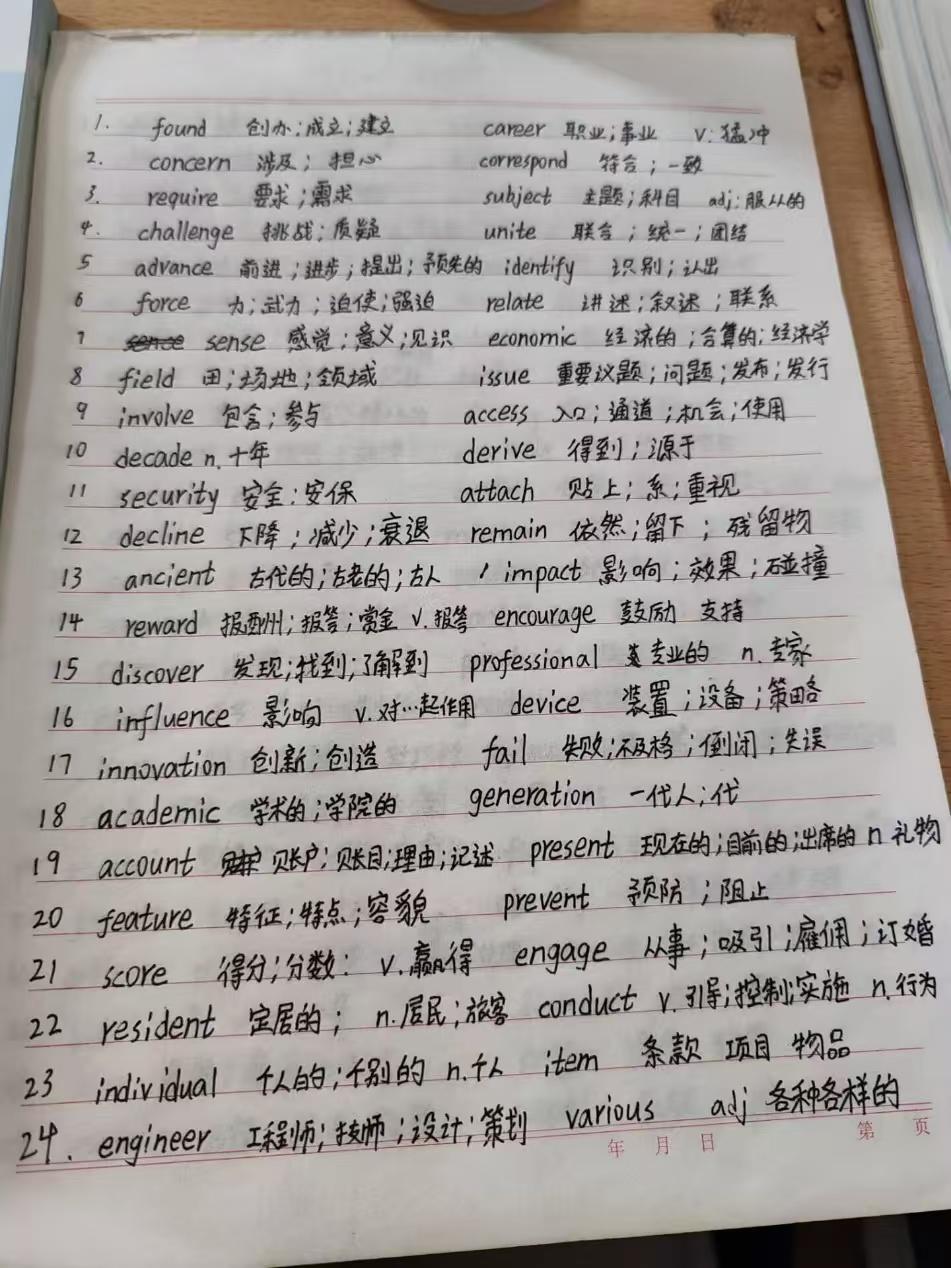 1. found 创办;成立;建立 career 职业;事业 v:猛冲
2. concern 涉及; 担心 correspond 符合;一致
3. require 要求;需求 subject 主题;科目 adj:服从的
4. challenge 挑战;质疑 unite 联合;统一;团结
5 advance 前进;进步;提出;预先的 identify 识别;认出
6 force 力;武力;迫使;强迫 relate 讲述;叙述;联系
7 sense sense 感觉;意义;见识 economic 经济的;合算的;经济学
8 field 田;场地;领域 issue 重要议题;问题;发布;发行
9 involve 包含;参与 access 入口;通道;机会;使用
10 decade n.十年 derive 得到;源于
11 security 安全:安保 attach 贴上;系;重视
12 decline 下降;减少;衰退 remain 依然;留下;残留物
13 ancient 古代的;古老的;古人 impact 影响;效果;碰撞
14 reward 报酬州;报答;赏金 v.报答 encourage 鼓励 支持
15 discover 发现;找到;了解到 professional 专业的 n.专家
16 influence 影响 v.对…起作用 device 装置;设备;策略
17 innovation 创新;创造 fail 失败;不及格;倒闭;失误
18 academic 学术的;学院的 generation 一代人;代
19 account 账户;账目;理由;记述 present 现在的;目前的;出席的 n礼物
20 feature 特征;特点;容貌 prevent 预防;阻止
21 score 得分;分数: v.赢得 engage 从事;吸引;雇佣;订婚
22 resident 定居的; n.居民;旅客 conduct v.引导;控制;实施 n.行为
23 individual 个人的;个别的 n.个人 item 条款 项目 物品
24. engineer 工程师;技师;设计;策划 various adj 各种各样的
年 月 日 第 页